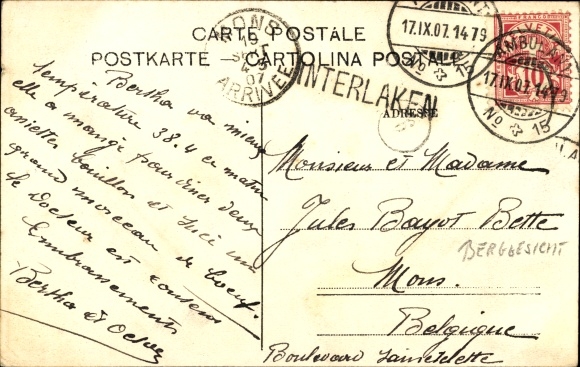 CARTE POSTALE
POSTKARTE – CARTOLINA POSTALE
MONS
19
SEPT
07
ARRIVEE
INTERLAKEN
17.IX.07.14
Nº 15
HELVETIA
FRANCO
10
AMBULANT
17.IX.07.14
Nº 15
ADRESSE
Bertha va mieux
température 38.4 ce matin
elle a mangé pour diner deux
assiettes bouillon et
grand morceau de boeuf.
le Docteur est content
Embrassements
Bertha et
Monsieur et Madame
Jules Bayot Bette
BERGGESICHT
Mons.
Belgique
Boulevard